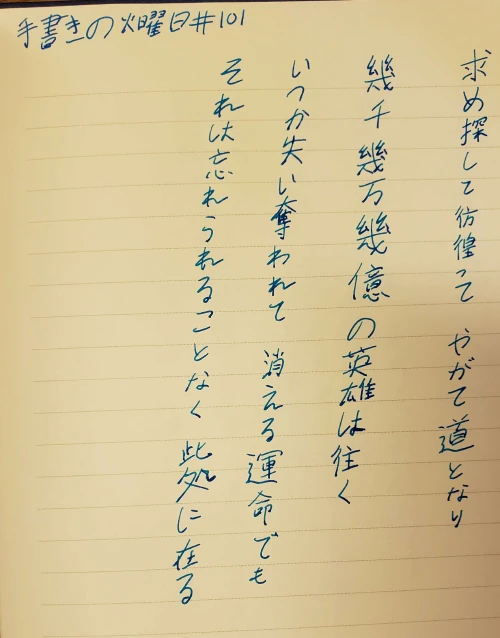 手書きの火曜日#101
求め探して彷徨って やがて道となり
幾千幾万幾億の英雄は往く
いつか失い奪われて 消える運命でも
それは忘れられることなく 此処に在る